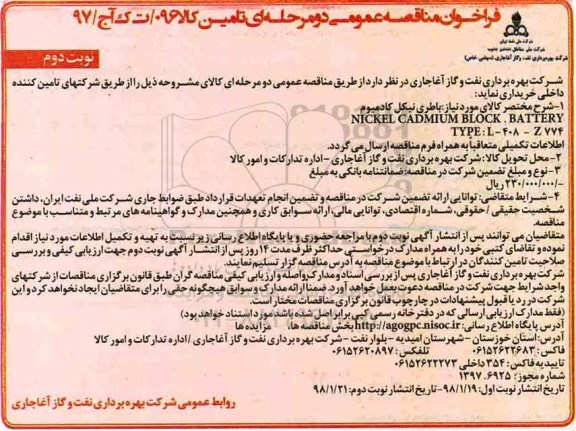 فراخوان مناقصه عمومی دو مرحله‌ای تامین کالا ۰۹۶/ت ک آج/۹۷
شرکت ملی نفت ایران
شرکت ملی مناطق نفتخیز جنوب
شرکت بهره برداری نفت و گاز آغاجاری (سهامی خاص)
نوبت دوم
شرکت بهره برداری نفت و گاز آغاجاری در نظر دارد از طریق مناقصه عمومی دو مرحله ای کالای مشروحه ذیل را از طریق شرکتهای تامین کننده
داخلی خریداری نماید:
۱-شرح مختصر کالای مورد نیاز: باطری نیکل کادمیوم
NICKEL CADMIUM BLOCK . BATTERY
TYPE : L - ۴۰۸ - Z ۷۷۴
اطلاعات تکمیلی متعاقبا به همراه فرم مناقصه ارسال می گردد.
۲-محل تحویل کالا: شرکت بهره برداری نفت و گاز آغاجاری -اداره تدارکات و امور کالا
۳- نوع و مبلغ تضمین شرکت در مناقصه: ضمانتنامه بانکی به مبلغ
۲۳۰/۰۰۰/۰۰۰/- ریال
۴-شرایط متقاضی: توانایی ارائه تضمین شرکت در مناقصه و تضمین انجام تعهدات قرارداد طبق ضوابط جاری شرکت ملی نفت ایران، داشتن
شخصیت حقیقی / حقوقی، شماره اقتصادی، توانایی مالی، ارائه سوابق کاری و همچنین مدارک و گواهینامه های مرتبط و متناسب با موضوع
مناقصه
متقاضیان می توانند پس از انتشار آگهی نوبت دوم با مراجعه حضوری و یا پایگاه اطلاع رسانی زیر نسبت به تهیه و تکمیل اطلاعات مورد نیاز اقدام
نموده و تقاضای کتبی خود را به همراه مدارک درخواستی حداکثر ظرف مدت ۱۴ روز پس از انتشار آگهی نوبت دوم جهت ارزیابی کیفی و بررسی
صلاحیت تامین کنندگان در ارتباط با موضوع مناقصه به آدرس مناقصه گزار تسلیم نمایند.
شرکت بهره برداری نفت و گاز آغاجاری پس از بررسی اسناد و مدارک واصله و ارزیابی کیفی مناقصه گران طبق قانون برگزاری مناقصات از شرکتهای
واجد شرایط جهت شرکت در مناقصه دعوت بعمل خواهد آورد. ضمنا ارائه مدارک و سوابق هیچگونه حقی را برای متقاضیان ایجاد نخواهد کرد و این
شرکت در رد یا قبول پیشنهادات در چارچوب قانون برگزاری مناقصات مختار است.
(فقط مدارک ارزیابی ارسالی که در دفتر خانه رسمی کپی برابر اصل شده باشد مورد استناد خواهد بود)
آدرس پایگاه اطلاع رسانی: http://agogpc.nisoc.ir بخش مناقصه ها مزایده ها
آدرس: استان خوزستان - شهرستان امیدیه - بلوار نفت - شرکت بهره برداری نفت و گاز آغاجاری / اداره تدارکات و امور کالا
فاکس: ۰۶۱۵۲۶۲۲۶۸۳ تلفکس: ۰۶۱۵۲۶۲۰۸۹۷
تاییدیه فاکس: ۳۵۴ داخلی ۰۶۱۵۲۶۲۲۲۷۳
شماره مجوز: ۱۳۹۷.۶۹۲۵
تاریخ انتشار نوبت اول: ۹۸/۱/۱۹ - تاریخ انتشار نوبت دوم: ۹۸/۱/۲۱
روابط عمومی شرکت بهره برداری نفت و گاز آغاجاری